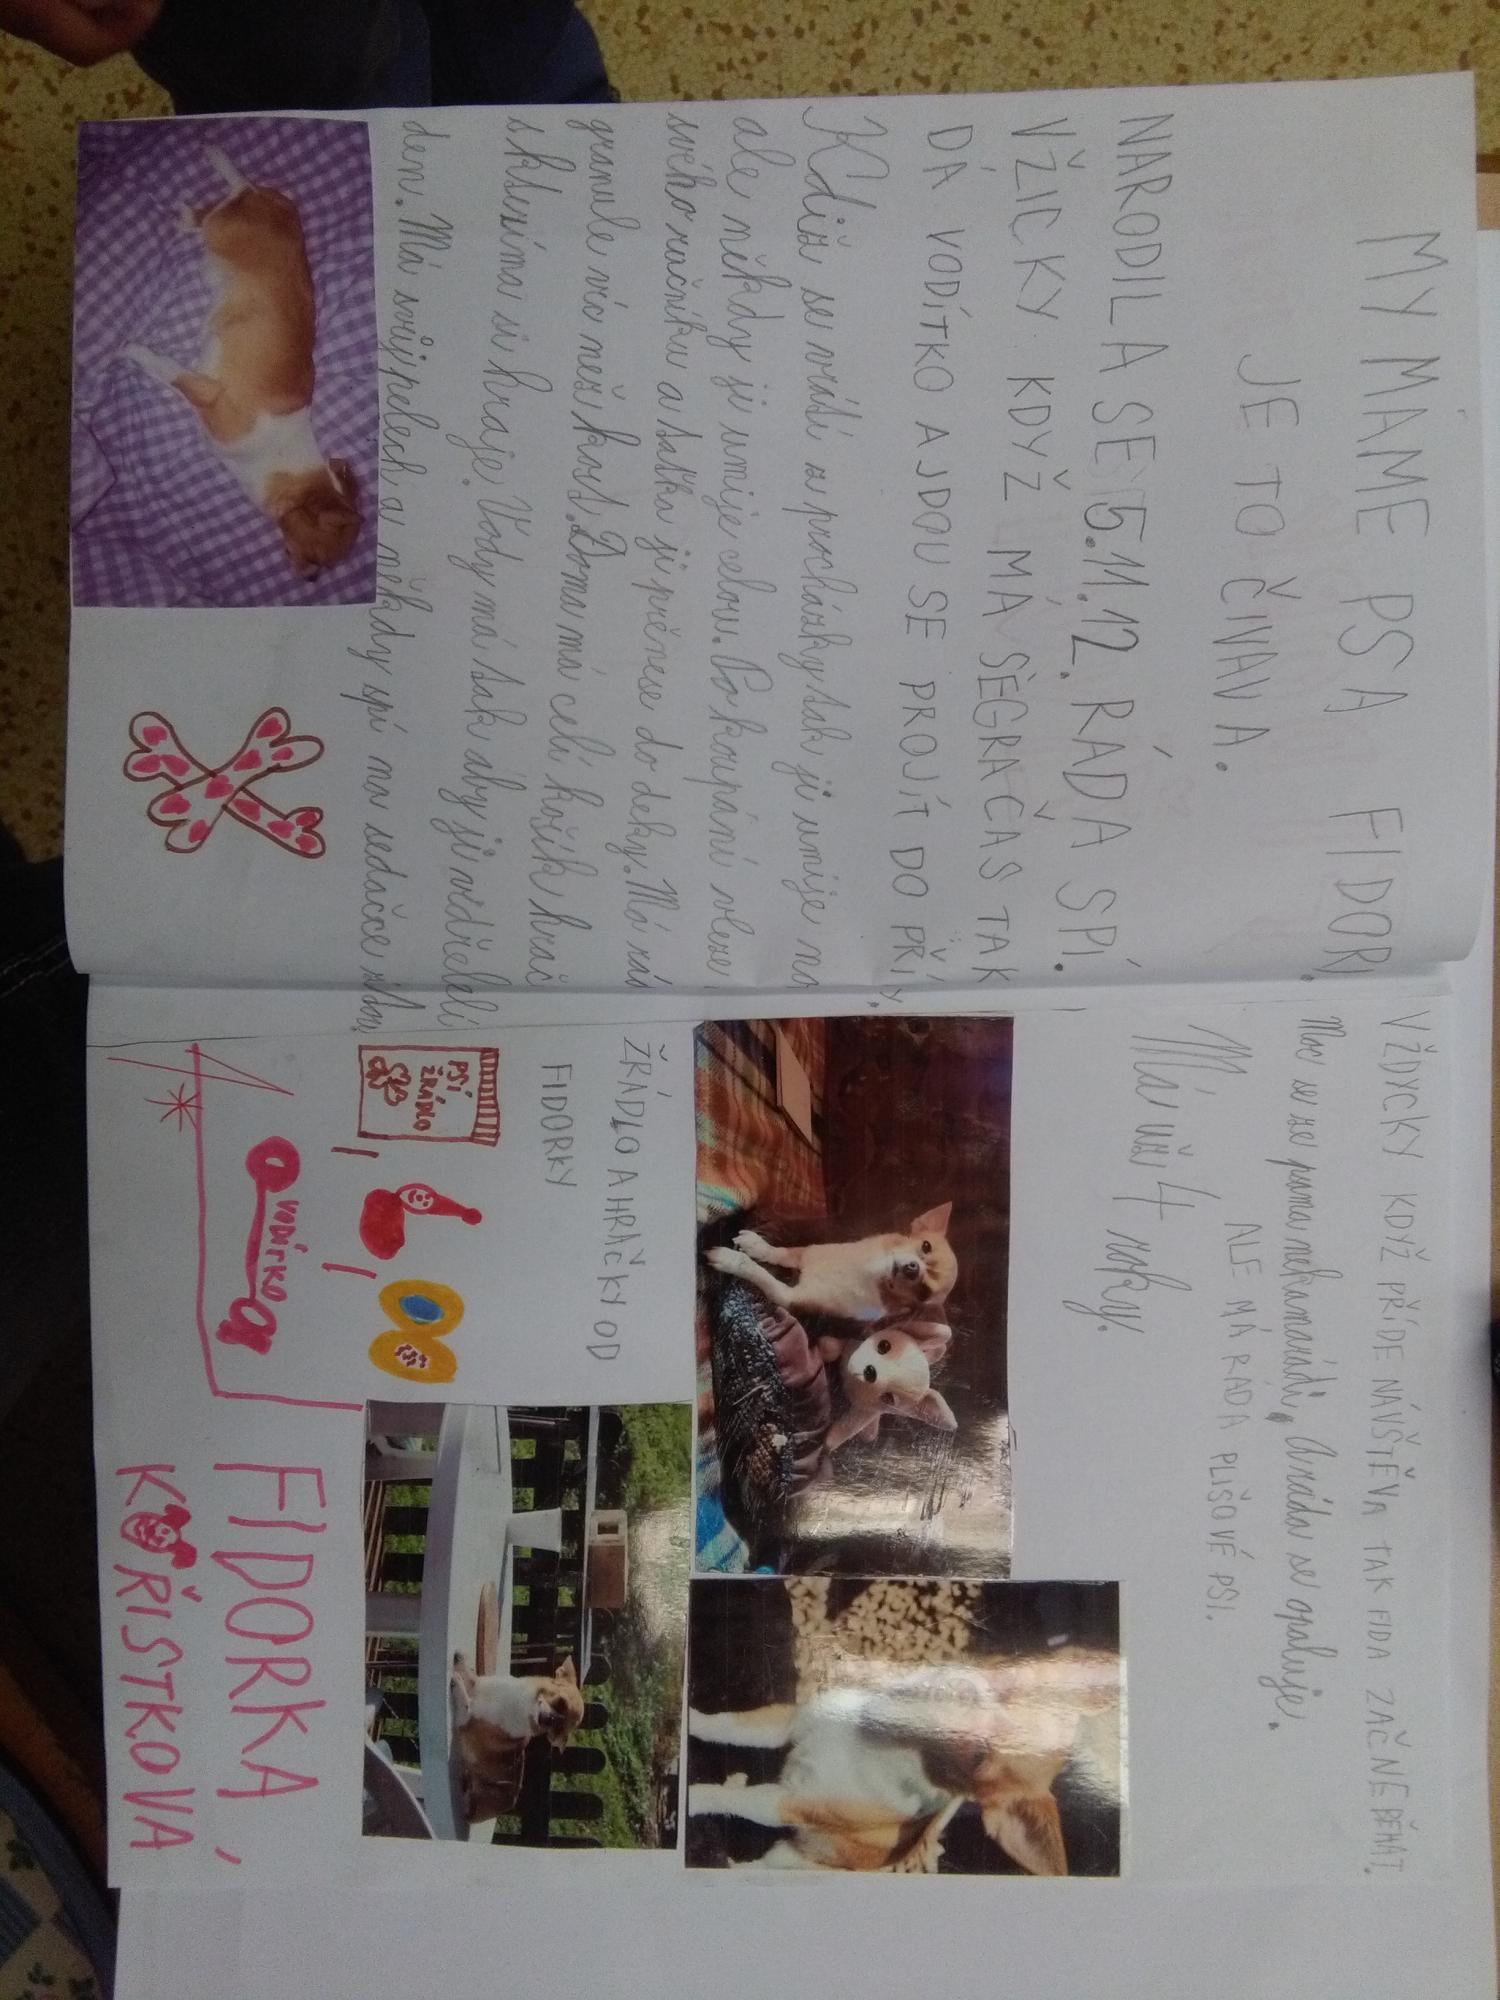 MY MÁME PSA FIDORKU.
JE TO ČIVAVA.
NARODILA SE 15.11.12. RÁDA SPÍ.
VŽICKY KDYŽ MÁ SÉGRA ČAS TAK
DÁ VODÍTKO A JDOU SE PROJÍT DO PŘÍ
Kdiž se vrátí z procházky tak ji umije no
ale někdy ji umije celou. Po koupání vleze
svého ručníku a taťka ji přenese do deky. Má rá
granule víc než kost. Doma má celí košík hrač
s kterima si hraje. Vždy má tak aby ji vidřeli
den. Má svůj pelech a někdy spí na sedačce
VŽDYCKY KDYŽ PŘÍDE NÁVŠTĚVA TAK FIDA ZAČNE BĚHAT.
Moc se ze psama nekamarádí, A ráda se opaluje.
ALE MÁ RÁDA PLIŠOVÉ PSI.
Má už 4 roky.
ŽRÁDLO A HRAČKY OD
FIDORKY
PSÍ
ŽRÁDLO
VODÍTKO
FIDORKA
KOŘISTKOVÁ